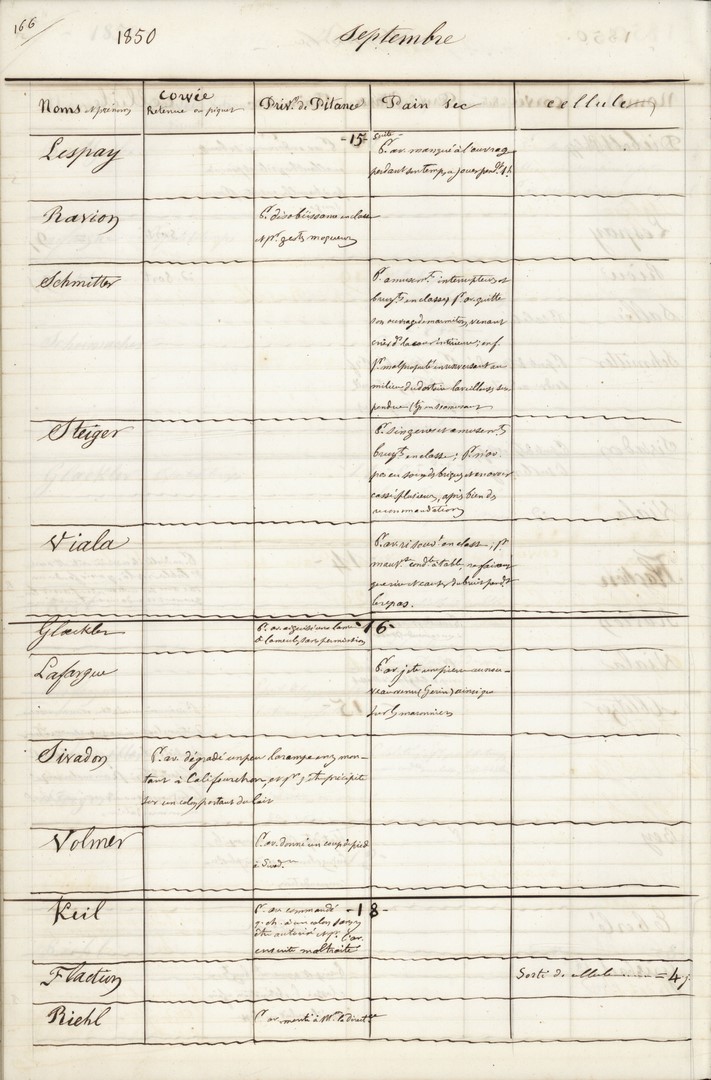 166
1850 Septembre
Noms et prénoms
Corvée
Retenue au pignot
Priv.on de Pitance
Pain sec
cellule
-15- Suite
Lespay
P. av. manqué à l'ouvrag
pendant son temps à jouer pend.t 1 h
Ravion
P. désobéissance en classe
et p.r gestes moqueurs
Schmitter
P. amusem.ts interrupteurs et
bruy.ts en classe; P. av. quitté
son ouvrage de marmiton, venant
crier d.s la cour intérieure; enf.
P. malpropreté en renversant au
milieu du dortoir la veilleuse
Steiger
P. singeries et amusem.ts
bruy.ts en classe; P. n'av.
pas eu soin de briques et en avoir
cassé plusieurs, après bien de
recommandations
Viala
P. av. ri souv.t en classe; p.r
mauv.se cond.te à table, ne faisant
que rire et causer du bruit pend.t
le repas.
-16-
Glackler
P. av. aiguisé une lame
de couteau, sans permission
Lafargue
P. av. jeté une pierre au nou-
veau venu (Gerin) ainsi que
sur les maronniers
Sivadon
P. av. dégradé un peu la rampe en y mon-
tant à Califourchon, et p.r s'être précipité
sur un colon portant du lait
Volmer
P. av. donné un coup de pied
à Sivad.n
-18-
Keil
P. av. commandé
q. ch. à un colon sans y
être autorisé et p.r l'av.
ensuite maltraité
Flaction
Sorti de cellule = 4 j.
Riehl
P. av. menti à Mr. le direct.r